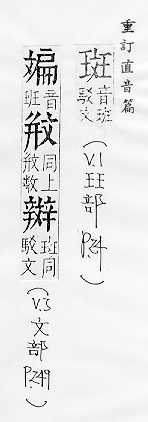 重訂直音篇
斑 音班 駁文 (V.1 玨部 P.24)
斒 音班 同上 辬 斑同 駁文 (V.3 文部 P.249)